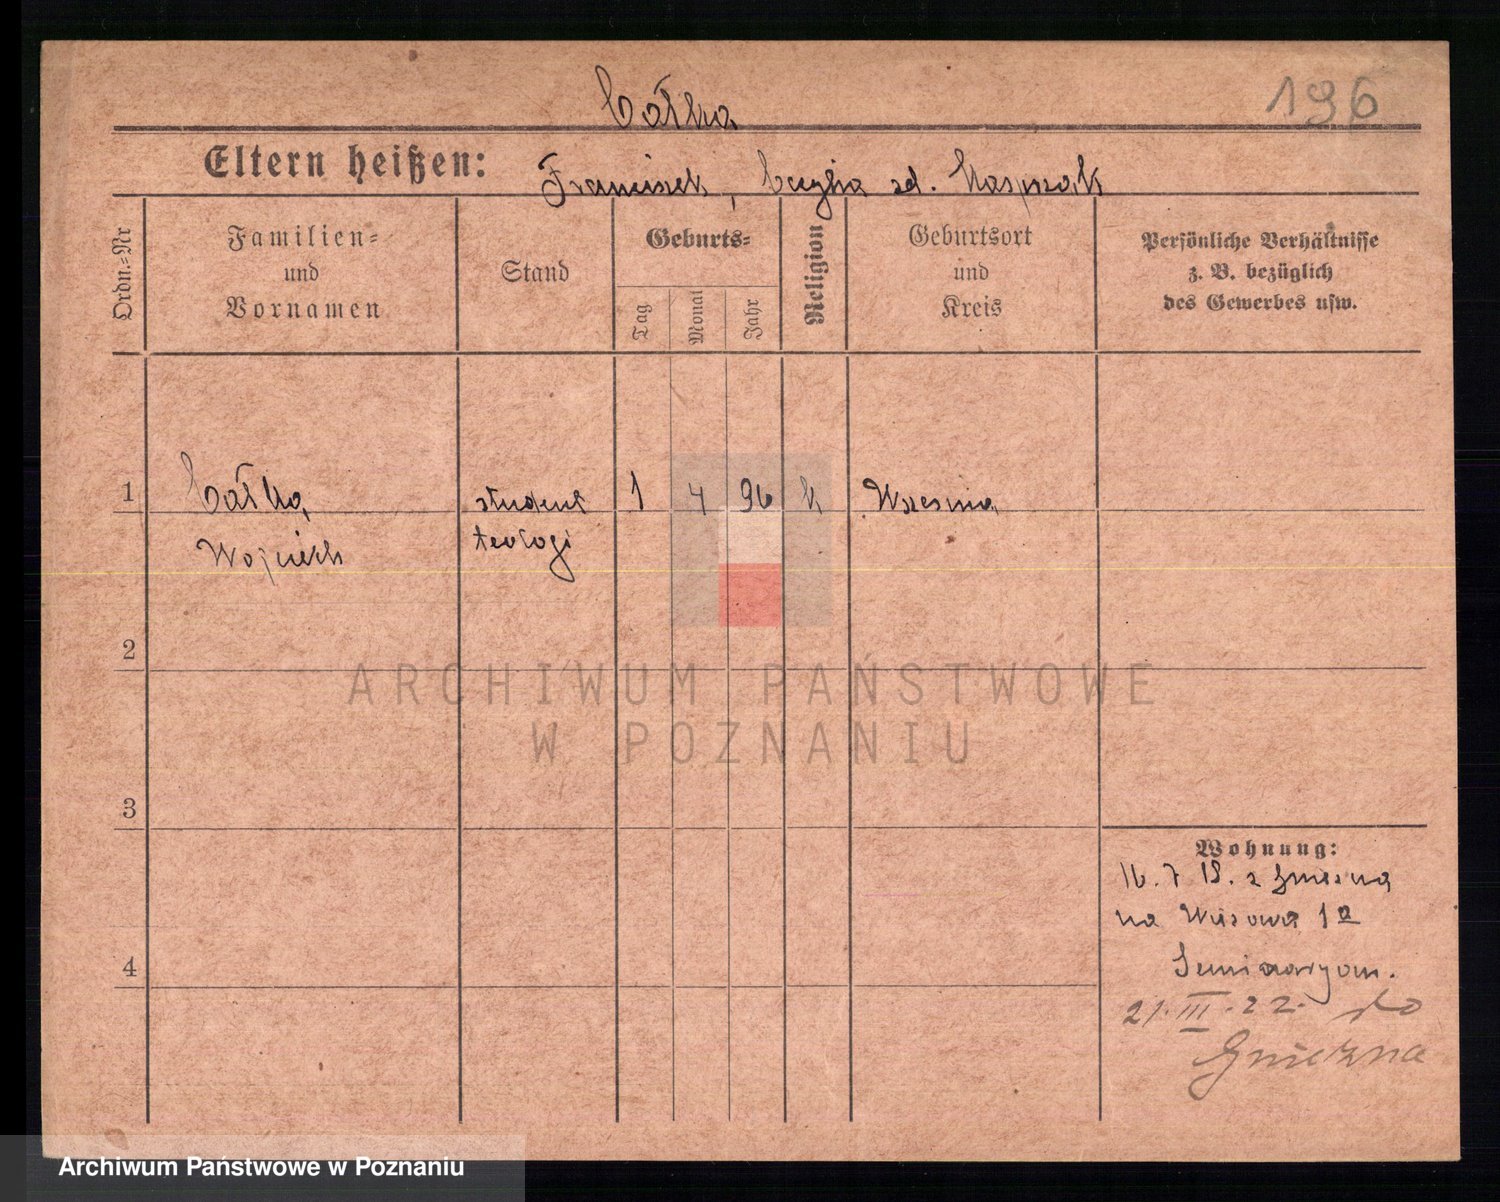 Całka
196
Eltern heißen: Franciszek, Cecylia zd. Kasprzak
Ordn.-Nr
Familien- und Vornamen
Stand
Geburts-
Tag
Monat
Jahr
Religion
Geburtsort und Kreis
Persönliche Verhältnisse z. B. bezüglich des Gewerbes usw.
1 Całka, student 1 4 96 k Wrzesnia
Wojciech teologi
2
3
4
Wohnung:
16. 7 18. z Gniezna
na 1a
Seminaryum.
21. III. 22. do
Gniezna
ARCHIWUM PAŃSTWOWE
W POZNANIU
Archiwum Państwowe w Poznaniu